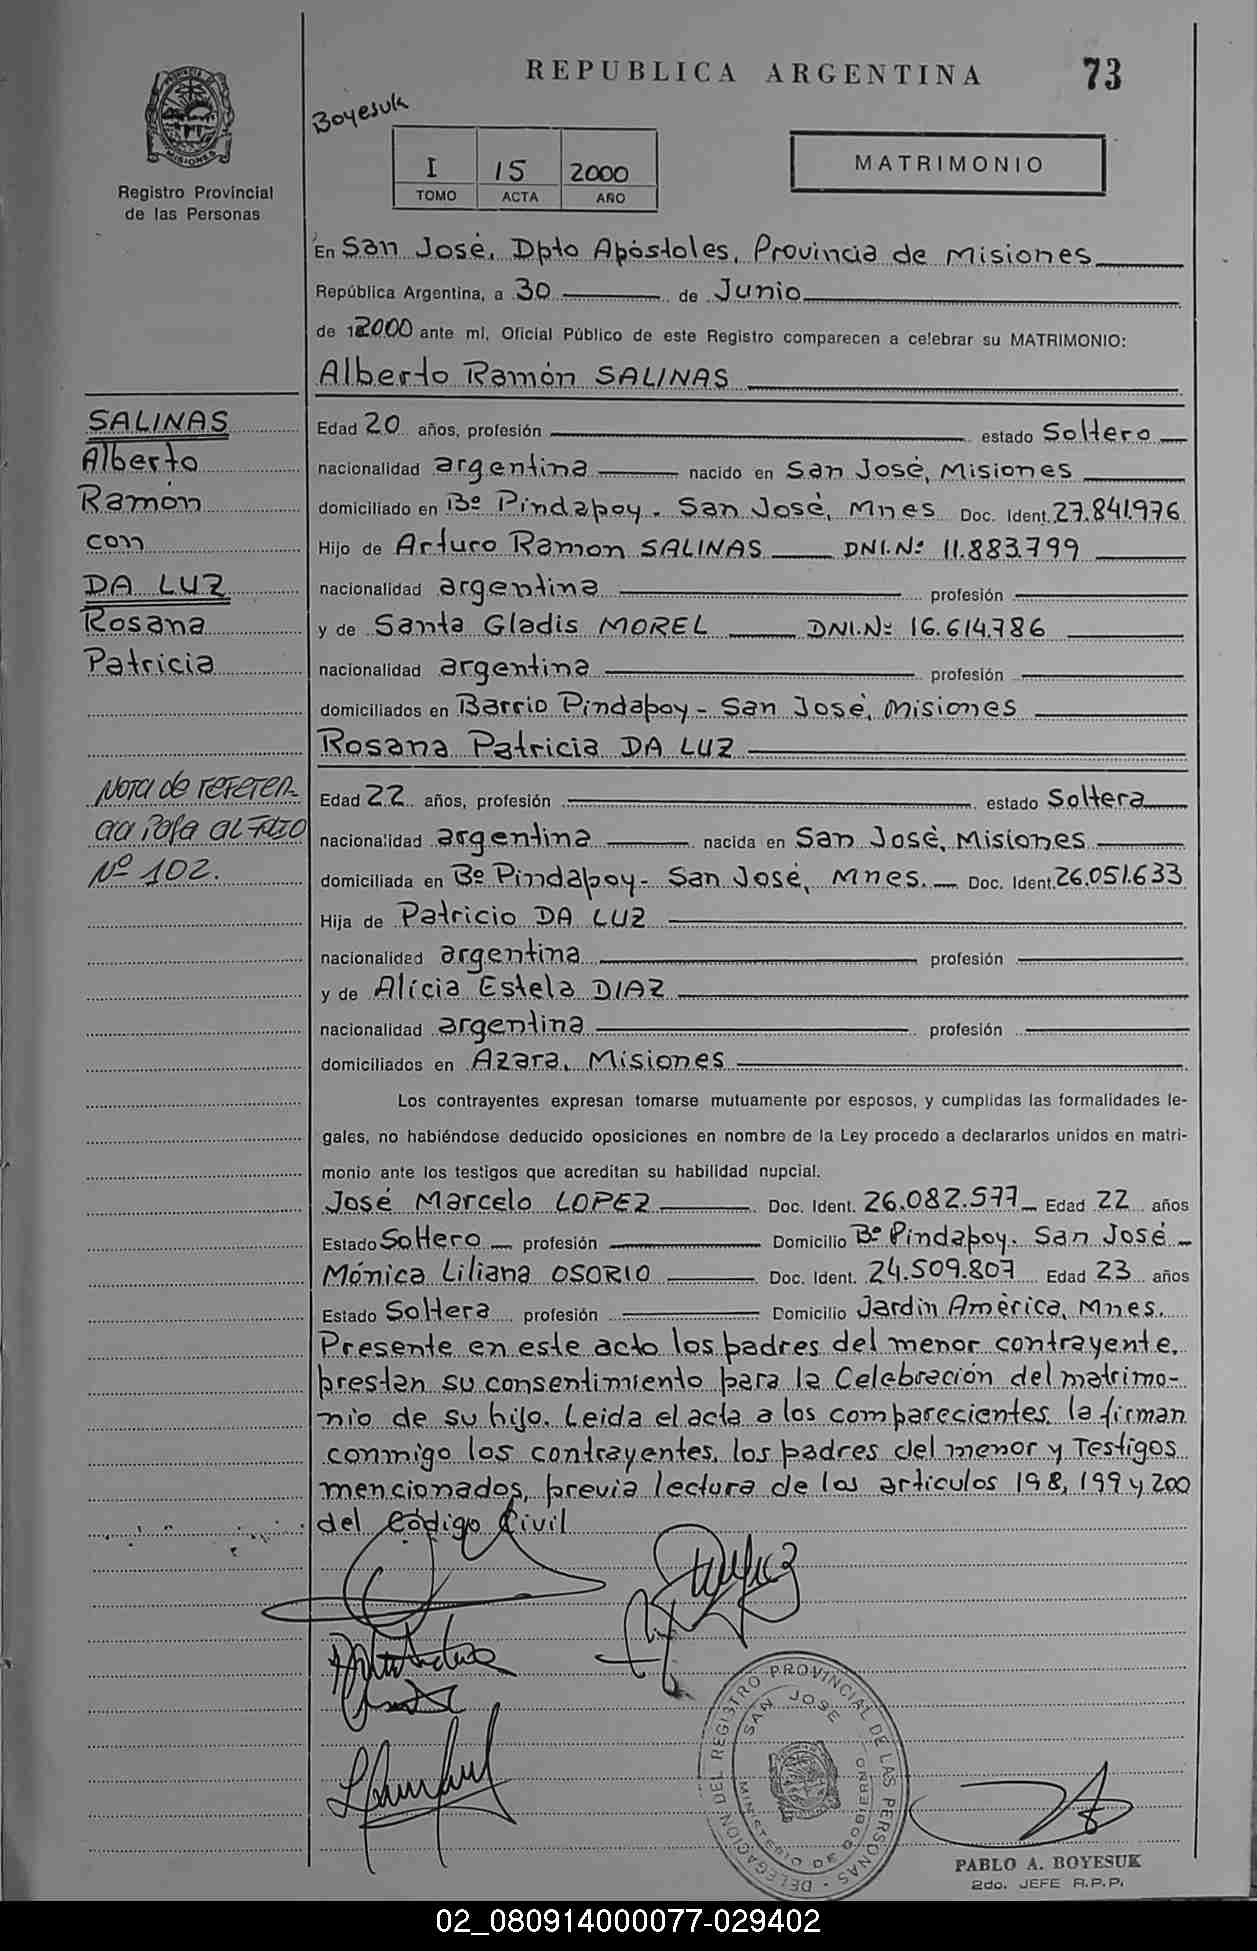 REPUBLICA ARGENTINA 73
Boyesuk
MISIONES
Registro Provincial
de las Personas
I 15 2000
TOMO ACTA AÑO
MATRIMONIO
En San José, Dpto Apóstoles, Provincia de Misiones
República Argentina, a 30 de Junio
de 2000 ante mí, Oficial Público de este Registro comparecen a celebrar su MATRIMONIO:
Alberto Ramón SALINAS
SALINAS
Alberto
Ramón
con
DA LUZ
Rosana
Patricia
Edad 20 años, profesión estado Soltero
nacionalidad argentina nacido en San José, Misiones
domiciliado en Bº Pindapoy. San José, Mnes Doc. Ident. 27.841.976
Hijo de Arturo Ramon SALINAS DNI.Nº 11.883.799
nacionalidad argentina profesión
y de Santa Gladis MOREL DNI.Nº 16.614.786
nacionalidad argentina profesión
domiciliados en Barrio Pindapoy - San José, Misiones
Rosana Patricia DA LUZ
Nota de referen-
cia pasa al folio
Nº 102.
Edad 22 años, profesión estado Soltera
nacionalidad argentina nacida en San José, Misiones
domiciliada en Bº Pindapoy - San José, Mnes. Doc. Ident. 26.051.633
Hija de Patricio DA LUZ
nacionalided argentina profesión
y de Alicia Estela DIAZ
nacionalidad argentina profesión
domiciliados en Azara, Misiones
Los contrayentes expresan tomarse mutuamente por esposos, y cumplidas las formalidades le-
gales, no habiéndose deducido oposiciones en nombre de la Ley procedo a declararlos unidos en matri-
monio ante los testigos que acreditan su habilidad nupcial.
José Marcelo LOPEZ Doc. Ident. 26.082.577 Edad 22 años
Estado Soltero profesión Domicilio Bº Pindapoy. San José
Mónica Liliana OSORIO Doc. Ident. 24.509.807 Edad 23 años
Estado Soltera profesión Domicilio Jardín América, Mnes.
Presente en este acto los padres del menor contrayente,
prestan su consentimiento para la Celebración del matrimo-
nio de su hijo. Leida el acta a los comparecientes la firman
conmigo los contrayentes, los padres del menor y Testigos
mencionados, previa lectura de los artículos 198, 199 y 200
del Código Civil
DELEGACION DEL REGISTRO PROVINCIAL DE LAS PERSONAS
SAN JOSE
MINISTERIO DE GOBIERNO
PABLO A. BOYESUK
2do. JEFE R.P.P.
02_080914000077-029402